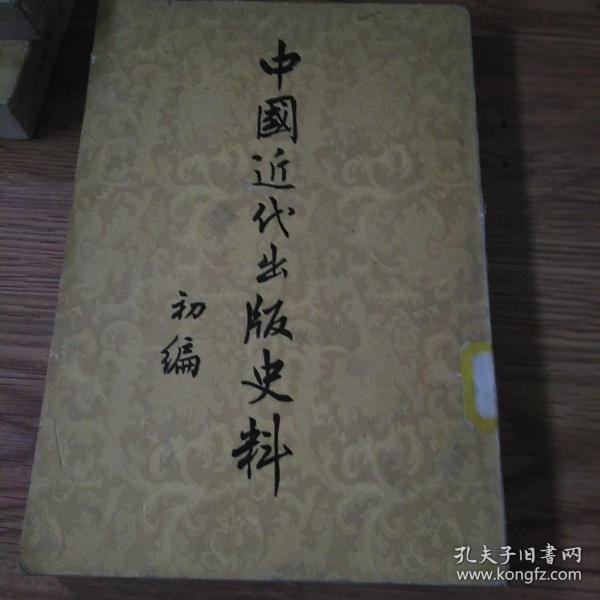 中國近代出版史料
初編
孔夫子旧書网
www.kongfz.com